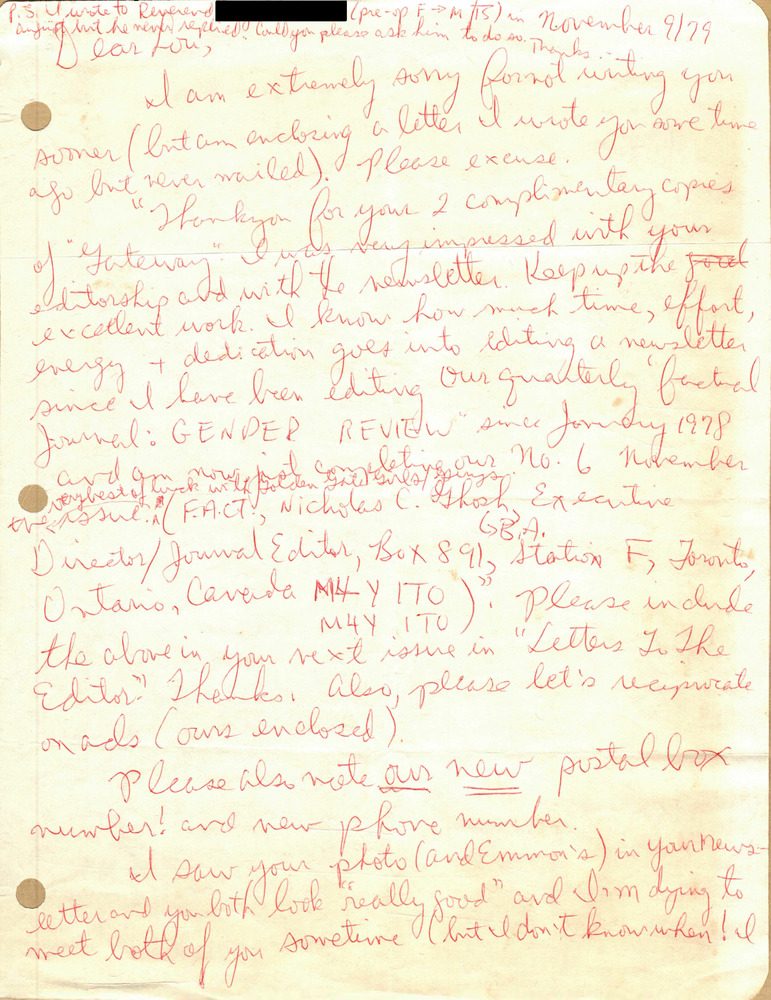 P.S. I wrote to Reverend (pre-op F → M TS) in November 9/79
August but he never replied! Could you please ask him to do so. Thanks.
Dear Lou,
I am extremely sorry for not writing you
sooner (but am enclosing a letter I wrote you some time
ago but never mailed). Please excuse.
"Thankyou for your 2 complimentary copies
of "Gateway". I was very impressed with your
editorship and with the newsletter. Keep up the good
excellent work. I know how much time, effort,
energy + dedication goes into editing a newsletter
since I have been editing our quarterly factual
Journal: GENDER REVIEW" since January 1978
and am now just completing our No. 6 November
very best of luck with Golden Gate Girls/Guys
issue. (F.A.C.T., Nicholas C. Ghosh, Executive
B.A.
Director/Journal Editor, Box 891, Station F, Toronto,
Ontario, Canada M4Y 1T0)". Please include
M4Y 1T0
the above in your next issue in "Letters To The
Editor". Thanks. Also, please let's reciprocate
on ads (ours enclosed).
Please also note our new postal box
number! and new phone number.
I saw your photo (and Emmon's) in your news-
letter and you both look "really good" and I'm dying to
meet both of you sometime (but I don't know when! I